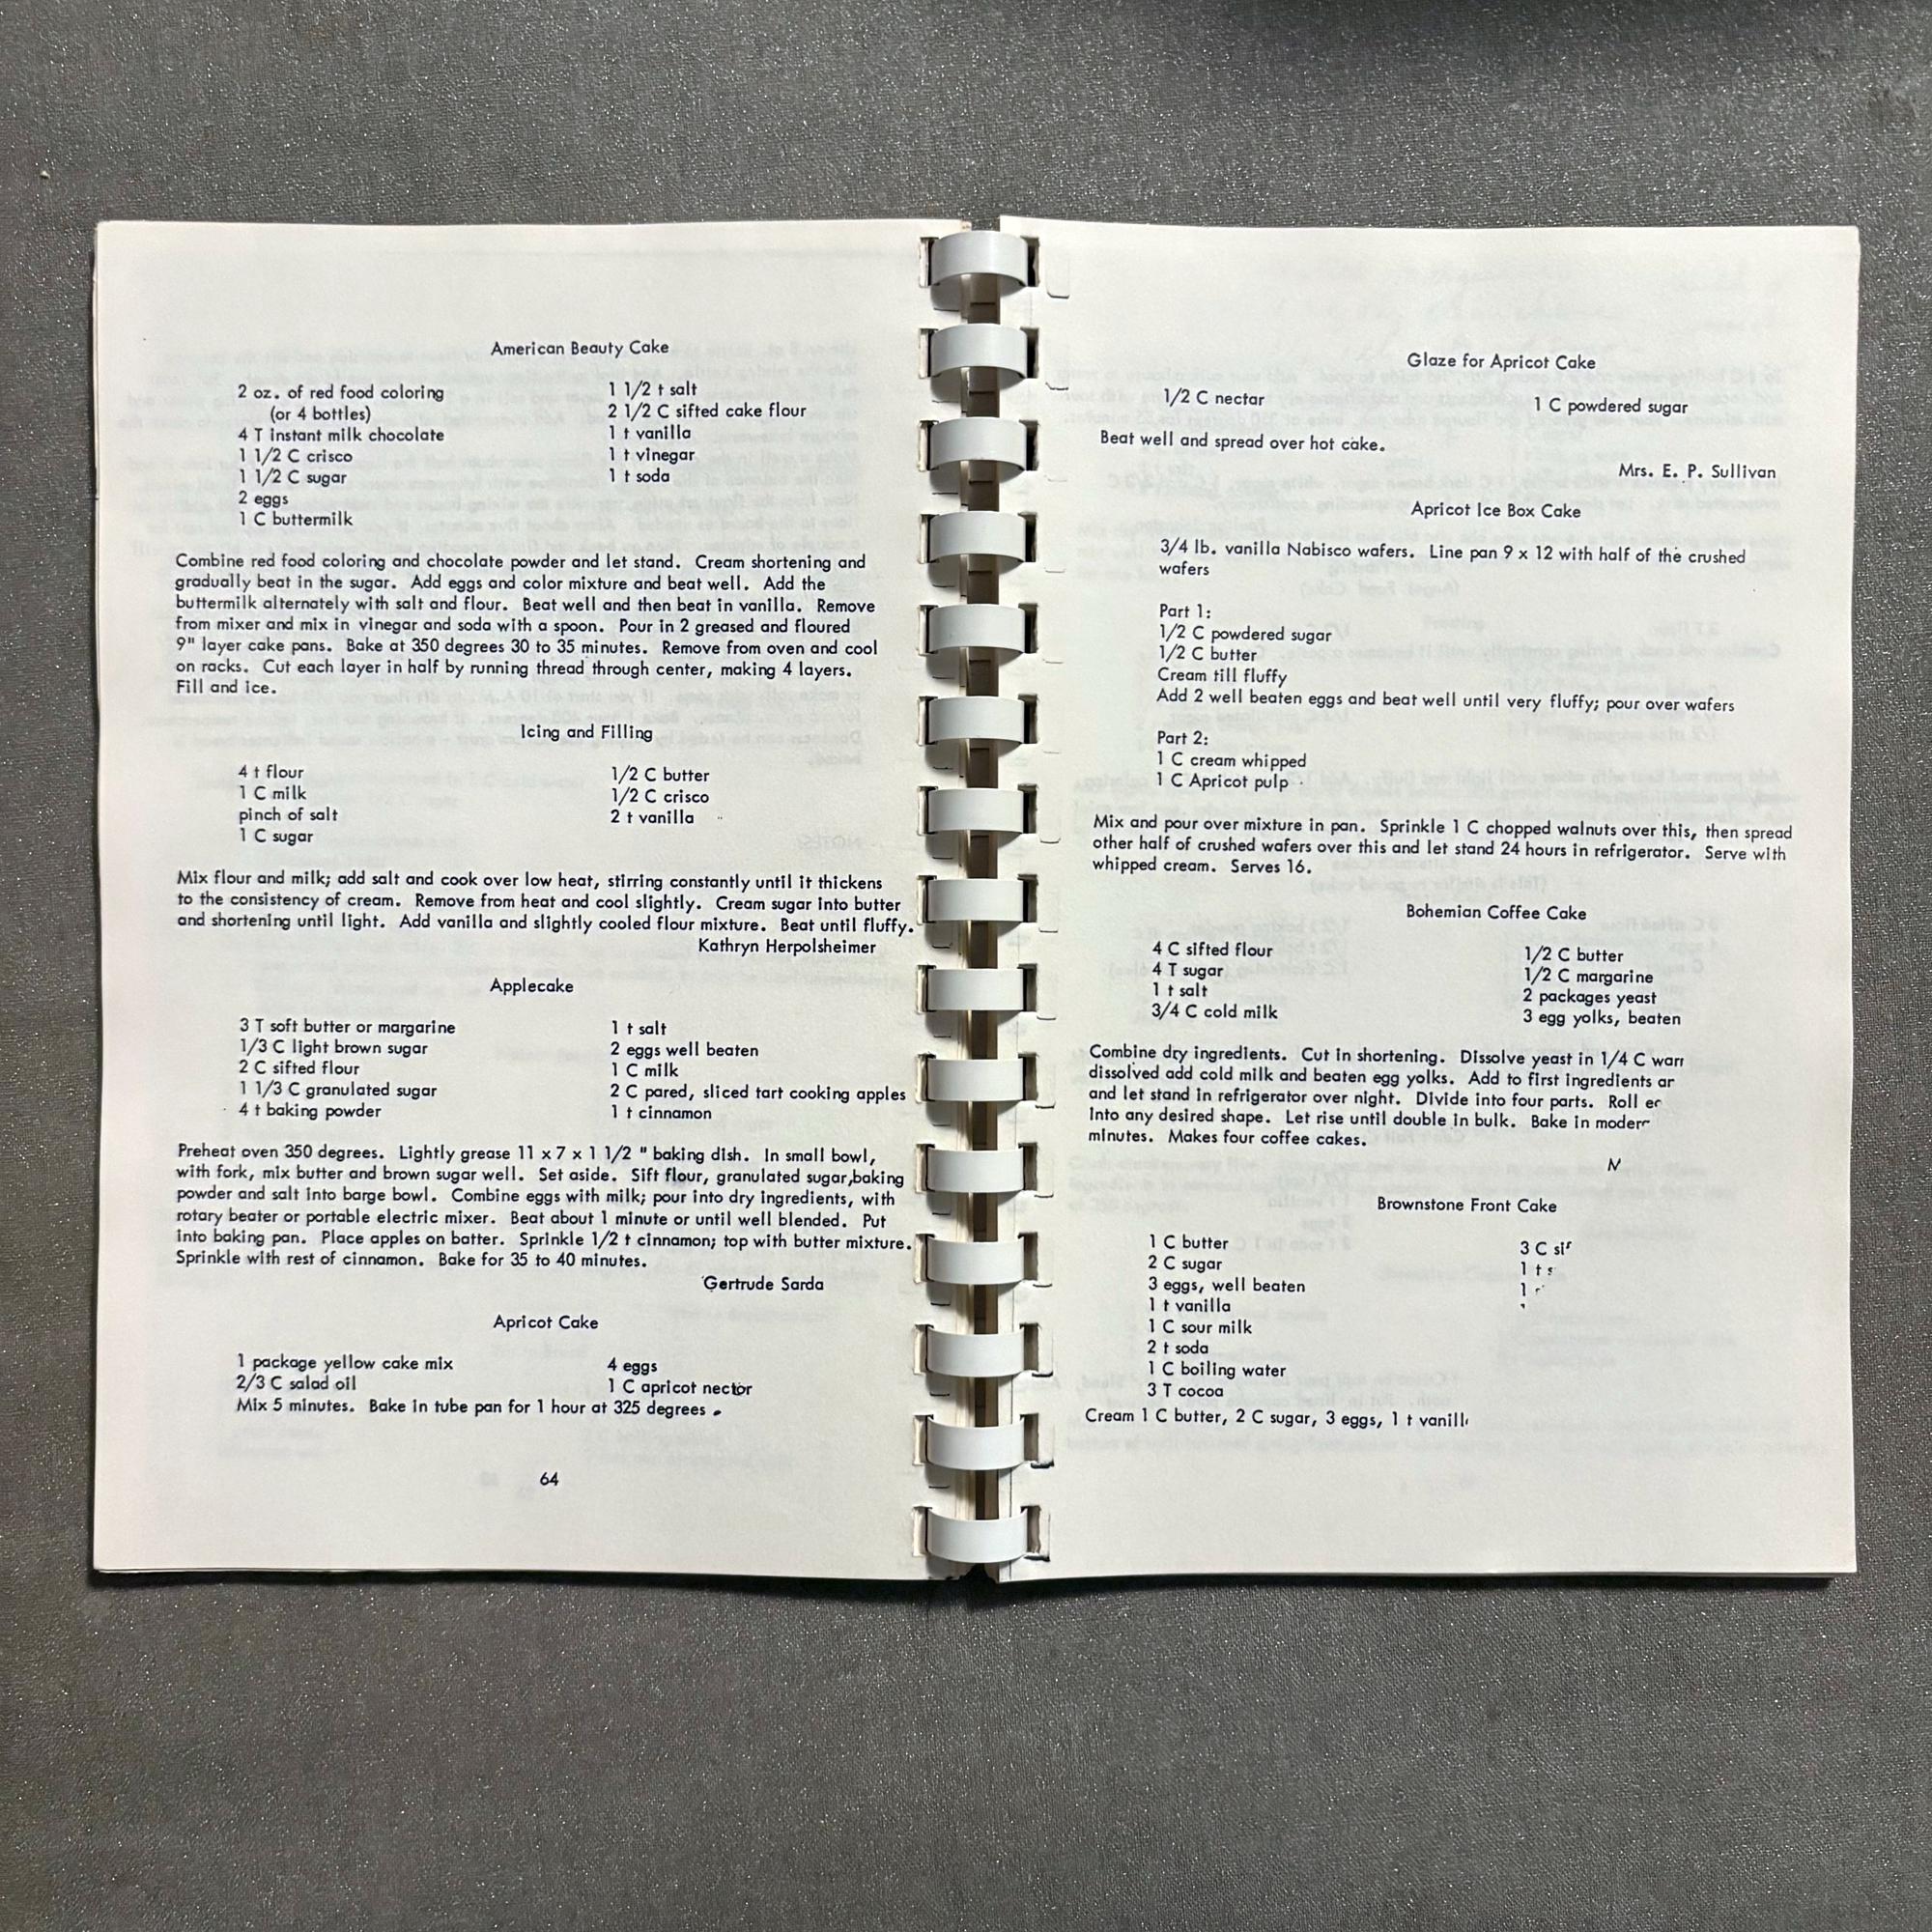 American Beauty Cake
2 oz. of red food coloring
(or 4 bottles)
4 T instant milk chocolate
1 1/2 C crisco
1 1/2 C sugar
2 eggs
1 C buttermilk
1 1/2 t salt
2 1/2 C sifted cake flour
1 t vanilla
1 t vinegar
1 t soda
Combine red food coloring and chocolate powder and let stand. Cream shortening and
gradually beat in the sugar. Add eggs and color mixture and beat well. Add the
buttermilk alternately with salt and flour. Beat well and then beat in vanilla. Remove
from mixer and mix in vinegar and soda with a spoon. Pour in 2 greased and floured
9" layer cake pans. Bake at 350 degrees 30 to 35 minutes. Remove from oven and cool
on racks. Cut each layer in half by running thread through center, making 4 layers.
Fill and ice.
Icing and Filling
4 t flour
1 C milk
pinch of salt
1 C sugar
1/2 C butter
1/2 C crisco
2 t vanilla
Mix flour and milk; add salt and cook over low heat, stirring constantly until it thickens
to the consistency of cream. Remove from heat and cool slightly. Cream sugar into butter
and shortening until light. Add vanilla and slightly cooled flour mixture. Beat until fluffy.
Kathryn Herpolsheimer
Applecake
3 T soft butter or margarine
1/3 C light brown sugar
2 C sifted flour
1 1/3 C granulated sugar
4 t baking powder
1 t salt
2 eggs well beaten
1 C milk
2 C pared, sliced tart cooking apples
1 t cinnamon
Preheat oven 350 degrees. Lightly grease 11 x 7 x 1 1/2 " baking dish. In small bowl,
with fork, mix butter and brown sugar well. Set aside. Sift flour, granulated sugar,baking
powder and salt into barge bowl. Combine eggs with milk; pour into dry ingredients, with
rotary beater or portable electric mixer. Beat about 1 minute or until well blended. Put
into baking pan. Place apples on batter. Sprinkle 1/2 t cinnamon; top with butter mixture.
Sprinkle with rest of cinnamon. Bake for 35 to 40 minutes.
Gertrude Sarda
Apricot Cake
1 package yellow cake mix
2/3 C salad oil
4 eggs
1 C apricot nector
Mix 5 minutes. Bake in tube pan for 1 hour at 325 degrees .
64
Glaze for Apricot Cake
1/2 C nectar
1 C powdered sugar
Beat well and spread over hot cake.
Mrs. E. P. Sullivan
Apricot Ice Box Cake
3/4 lb. vanilla Nabisco wafers. Line pan 9 x 12 with half of the crushed
wafers
Part 1:
1/2 C powdered sugar
1/2 C butter
Cream till fluffy
Add 2 well beaten eggs and beat well until very fluffy; pour over wafers
Part 2:
1 C cream whipped
1 C Apricot pulp
Mix and pour over mixture in pan. Sprinkle 1 C chopped walnuts over this, then spread
other half of crushed wafers over this and let stand 24 hours in refrigerator. Serve with
whipped cream. Serves 16.
Bohemian Coffee Cake
4 C sifted flour
4 T sugar
1 t salt
3/4 C cold milk
1/2 C butter
1/2 C margarine
2 packages yeast
3 egg yolks, beaten
Combine dry ingredients. Cut in shortening. Dissolve yeast in 1/4 C
dissolved add cold milk and beaten egg yolks. Add to first ingredients
and let stand in refrigerator over night. Divide into four parts. Roll
Into any desired shape. Let rise until double in bulk. Bake in
minutes. Makes four coffee cakes.
Brownstone Front Cake
1 C butter
2 C sugar
3 eggs, well beaten
1 t vanilla
1 C sour milk
2 t soda
1 C boiling water
3 T cocoa
3 C
1 t
1
Cream 1 C butter, 2 C sugar, 3 eggs, 1 t